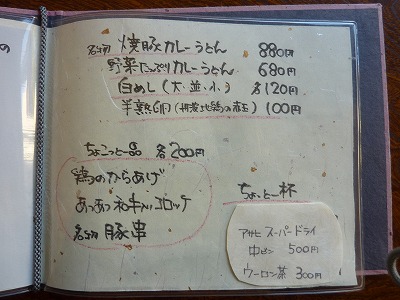 名物 焼豚カレーうどん 880円
野菜たっぷりカレーうどん 680円
白めし(大・並・小) 各120円
半熟卵(丹波地鶏の産玉) 100円
ちょこっと一品 各200円
鶏のからあげ
あつあつ和牛入りコロッケ
名物 豚串
ちょっと一杯
アサヒ スーパードライ
中ビン 500円
ウーロン茶 300円
の